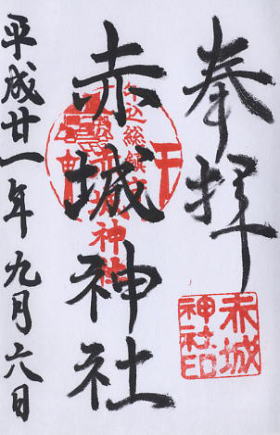 奉拝
赤城神社
平成廿一年九月六日
赤城
神社印
赤城神社